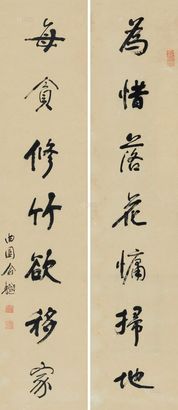 為惜落花慵掃地
每貪修竹欲移家
曲園俞樾